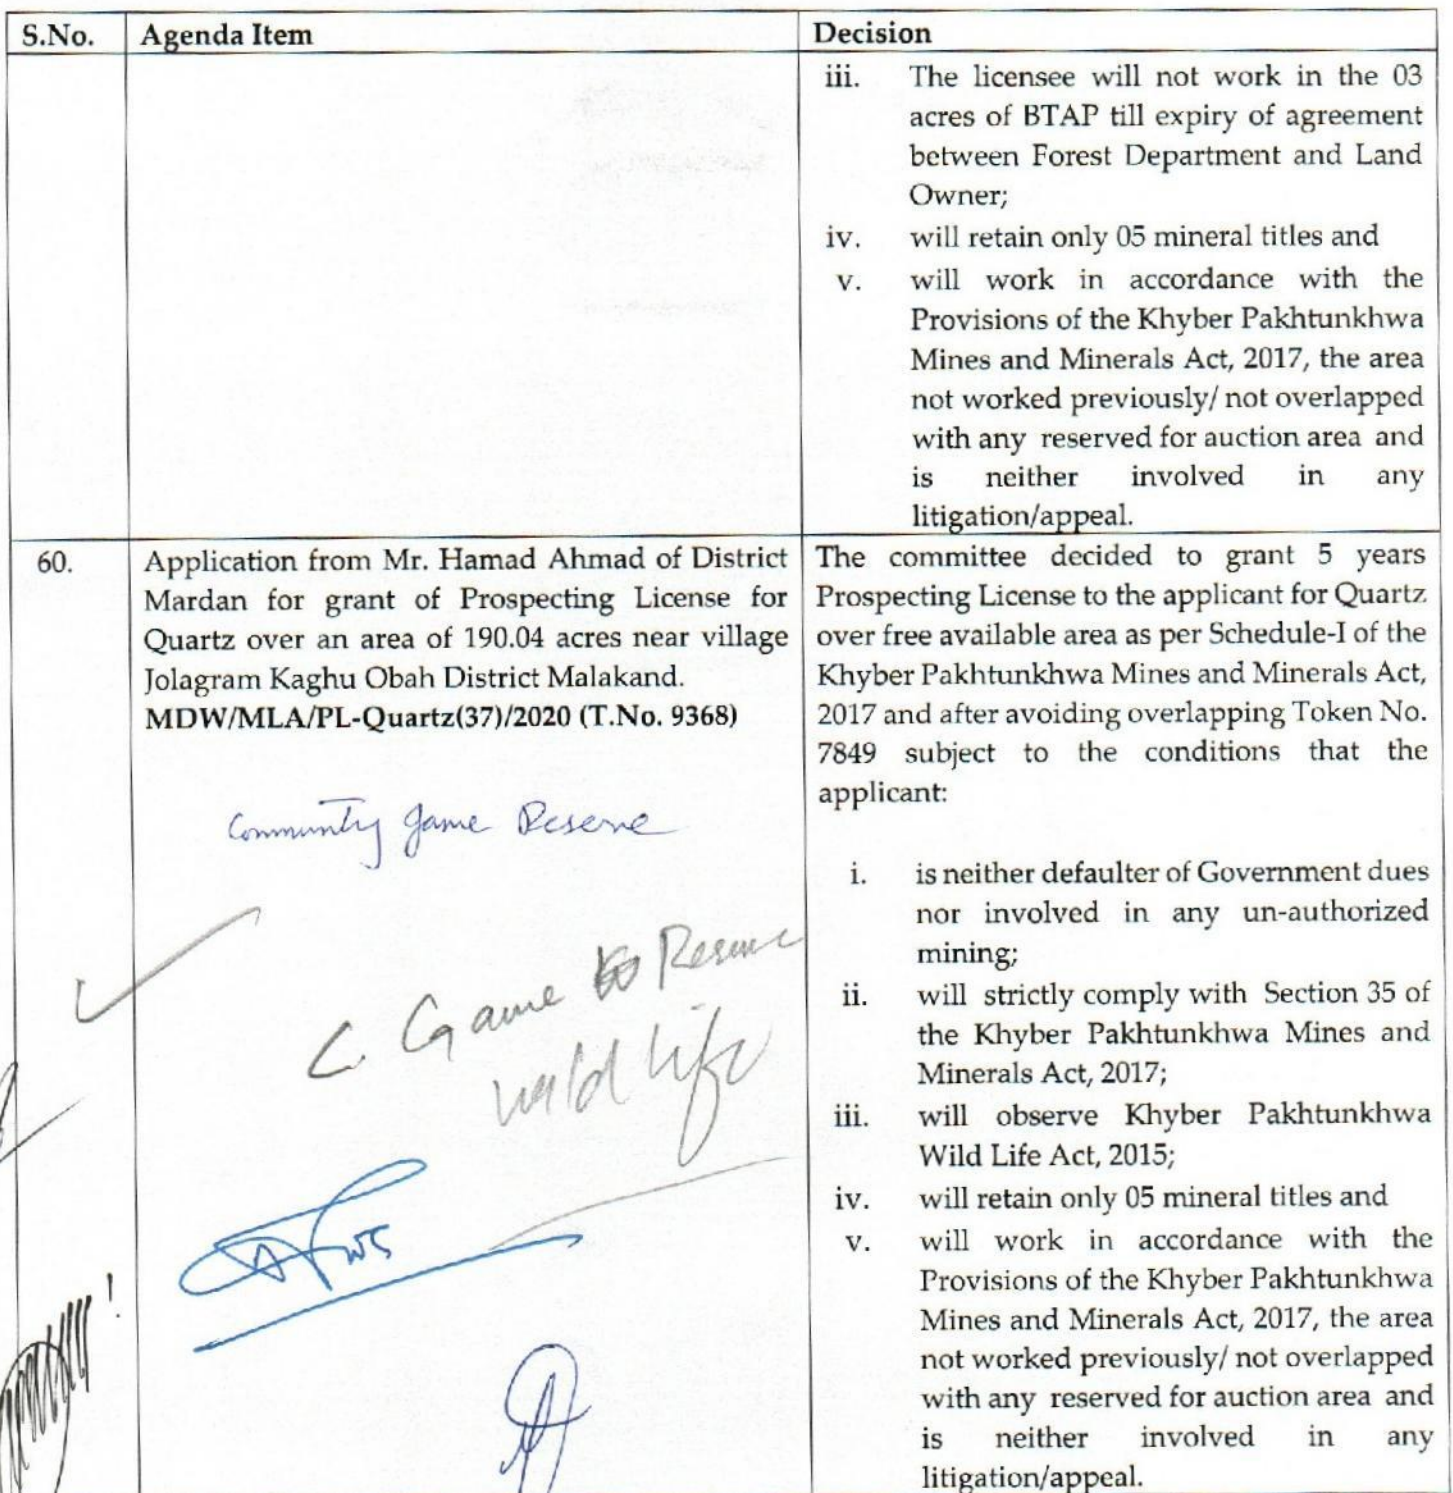 S.No. Agenda Item Decision
iii. The licensee will not work in the 03
acres of BTAP till expiry of agreement
between Forest Department and Land
Owner;
iv. will retain only 05 mineral titles and
v. will work in accordance with the
Provisions of the Khyber Pakhtunkhwa
Mines and Minerals Act, 2017, the area
not worked previously/ not overlapped
with any reserved for auction area and
is neither involved in any
litigation/appeal.
60.
Application from Mr. Hamad Ahmad of District
Mardan for grant of Prospecting License for
Quartz over an area of 190.04 acres near village
Jolagram Kaghu Obah District Malakand.
MDW/MLA/PL-Quartz(37)/2020 (T.No. 9368)
Community Game Reserve
C. Game Reserve
wild life
The committee decided to grant 5 years
Prospecting License to the applicant for Quartz
over free available area as per Schedule-I of the
Khyber Pakhtunkhwa Mines and Minerals Act,
2017 and after avoiding overlapping Token No.
7849 subject to the conditions that the
applicant:
i. is neither defaulter of Government dues
nor involved in any un-authorized
mining;
ii. will strictly comply with Section 35 of
the Khyber Pakhtunkhwa Mines and
Minerals Act, 2017;
iii. will observe Khyber Pakhtunkhwa
Wild Life Act, 2015;
iv. will retain only 05 mineral titles and
v. will work in accordance with the
Provisions of the Khyber Pakhtunkhwa
Mines and Minerals Act, 2017, the area
not worked previously/ not overlapped
with any reserved for auction area and
is neither involved in any
litigation/appeal.